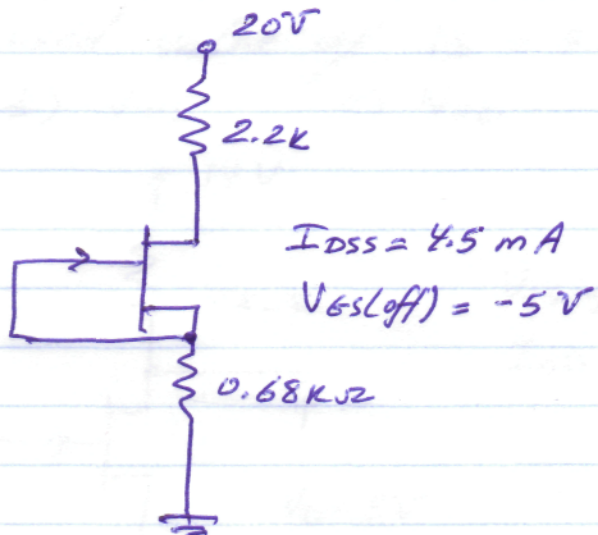 20V
2.2K
IDSS = 4.5 mA
VGS(off) = -5 V
0.68KΩ